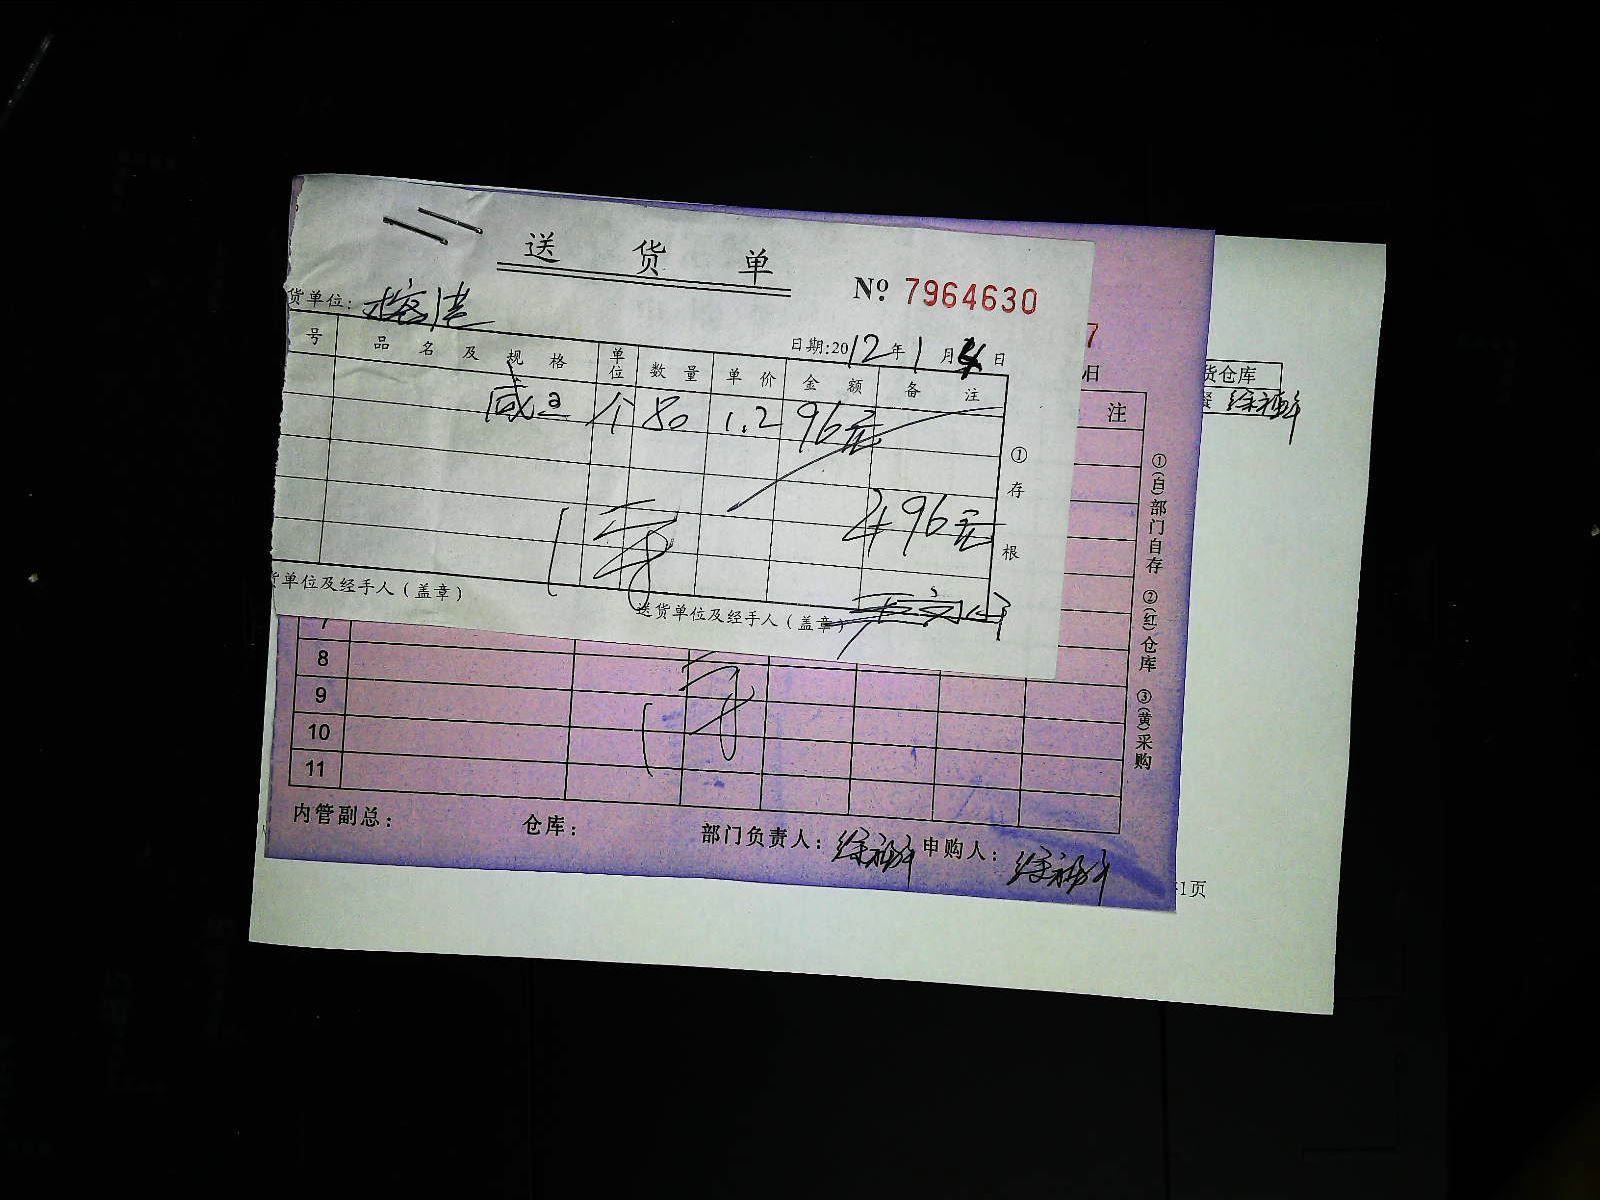 送 货 单
No. 7964630
货单位：榕港
日期:2012年1月4日
号 品 名 及 规 格 单位 数 量 单 价 金 额 备 注
咸 个 80 1.2 96元
496元
①存根
货单位及经手人（盖章）
送货单位及经手人（盖章）
7
日
注
货仓库
①(白)部门自存 ②(红)仓库 ③(黄)采购
7
8
9
10
11
内管副总： 仓库： 部门负责人： 申购人：
1页